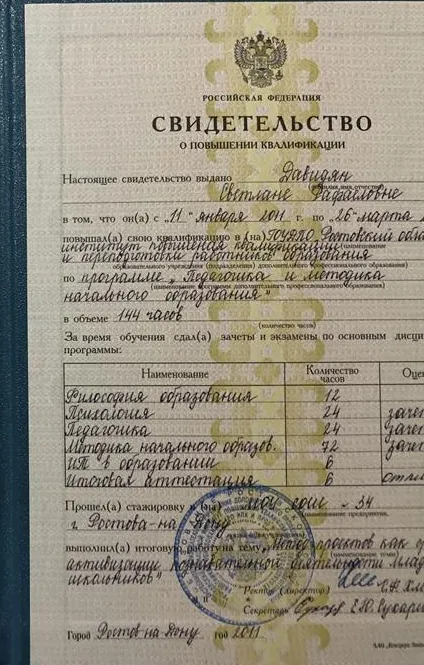 РОССИЙСКАЯ ФЕДЕРАЦИЯ
СВИДЕТЕЛЬСТВО
О ПОВЫШЕНИИ КВАЛИФИКАЦИИ
Настоящее свидетельство выдано Давидян
Светлане Рафаиловне
в том, что он(а) с „11" января 2011 г. по „26" марта
повышал(а) свою квалификацию в (на) ГОУДПО Ростовский
институт повышения квалификации
и переподготовки работников образования
образовательного учреждения (подразделения) дополнительного профессионального образования)
по программе „Педагогика и методика
(наименование программы дополнительного профессионального образования)
начального образования"
в объеме 144 часов
(количество часов)
За время обучения сдал(а) зачеты и экзамены по основным
программы:
Наименование Количество часов
Философия образования 12
Психология 24 зачет
Педагогика 24 зачет
Методика начального образов. 72 зачет
ИТ в образовании 6
Итоговая аттестация 6
Прошел(а) стажировку в (на) МОУ СОШ № 34
(наименование предприятия,
г. Ростова-на-Дону
выполнил(а) итоговую работу на тему „Метод проектов как
активизации познавательной деятельности
школьников"
Ректор (директор)
Секретарь Е.Ю.
Город Ростов-на-Дону год 2011